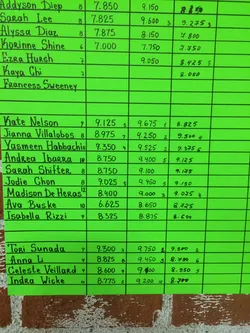 Addyson Diep 8 7.850 9.150
Sarah Lee 8 7.825 9.600 3 9.275 3
Alyssa Diaz 8 7.875 8.150 7.800
Korinne Shine 6 7.000 7.750
Ezra Hursh 7 9.050 8.425 5
Kaya Chi 7
Francess Sweeney
Kate Nelson 7 9.125 9.675 8.825
Jianna Villalobos 8 8.975 9.250
Yasmeen Habbachi 9.350 9.525
Andrea Ibarra 10 8.750 9.400 9.125
Sarah Shifter 8 8.750 9.100
Jodie Chon 8 9.025 9.450 9.150
Madison De Heras 8.400 9.000
Ava Buske 10 6.625 8.650 8.425
Isabella Rizzi 7 8.325 8.875
Tori Sunada 7 9.300 9.750
Anna L. 7 8.825 9.450
Celeste Veillard 8 8.600 8.550
Indra Wicke 10 8.775 9.200